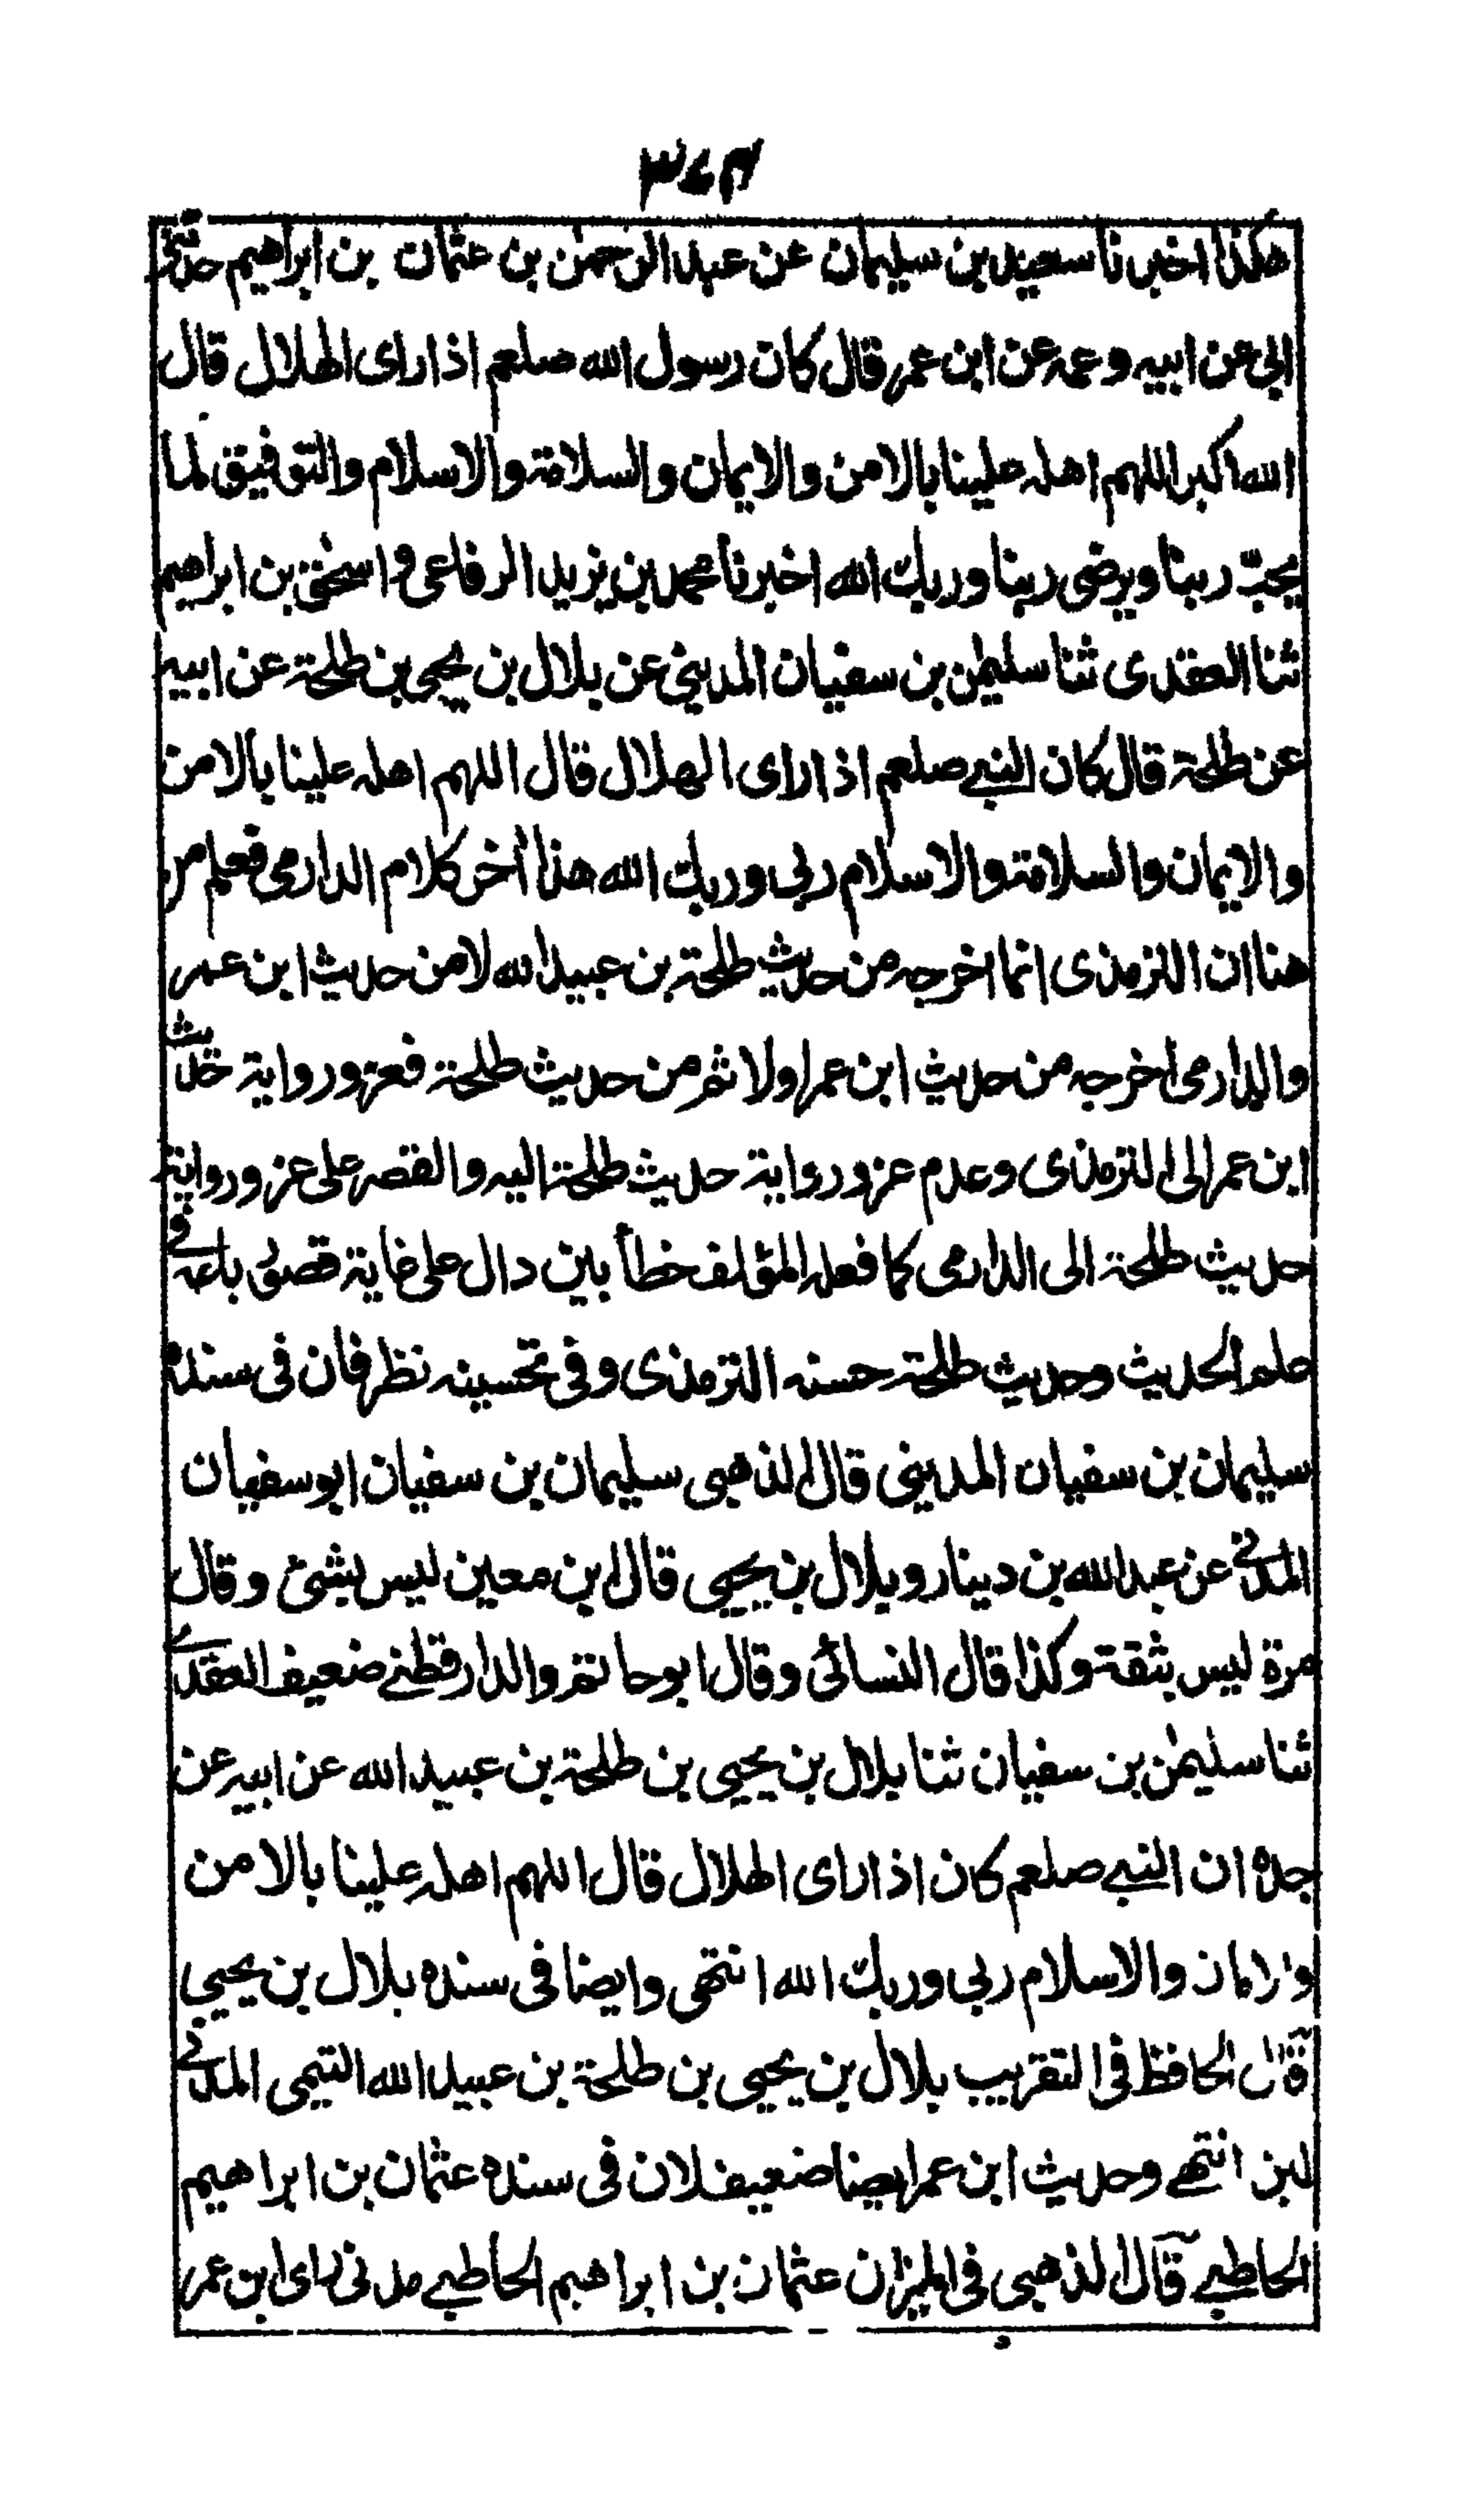 هكذا اخبرنا سعيد بن سليمان عن عبد الرحمن بن عثمان بن ابراهيم حدثنى
ابى عن ابيه وعمه عن ابن عمر قال كان رسول الله صلعم اذا راى الهلال قال
الله اكبر اللهم اهله علينا بالامن والايمان والسلامة والاسلام والتوفيق لما
يحبّ ربنا ويرضى ربنا وربك الله اخبرنا محمد بن يزيد الرفاعى و اسحٰق بن ابراهيم
ثنا العقدى ثنا سليمٰن بن سفيان المدينى عن بلال بن يحيى بن طلحة عن ابيه
عن طلحة قال كان النبى صلعم اذا راى الهلال قال اللهم اهله علينا بالامن
والايمان والسلامة والاسلام ربى وربك الله هذا أخر كلام الدارمى فعلم من
هنا ان الترمذى انما اخرجه من حديث طلحة بن عبيد الله لا من حديث ابن عمر
والدارمى اخرجه من حديث ابن عمر اولا ثم من حديث طلحة فعزو رواية حديث
ابن عمر الى الترمذى وعدم عزو رواية حديث طلحة اليه والقصر على عزو رواية
حديث طلحة الى الدارمى كما فعله المؤلف خطأ بين دال على غاية قصور باعه فى
علم الحديث وحديث طلحة حسنه الترمذى وفى تحسينه نظر فان فى سنده
سليمان بن سفيان المدينى قال الذهبى سليمان بن سفيان ابو سفيان
المدنى عن عبد الله بن دينار وبلال بن يحيى قال ابن معين ليس بشئ وقال
مرة ليس بثقة وكذا قال النسائى وقال ابو حاتم والدارقطنى ضعيف العقدى
ثنا سليمٰن بن سفيان ثنا بلال بن يحيى بن طلحة بن عبيد الله عن ابيه عن
جده ان النبى صلعم كان اذا راى الهلال قال اللهم اهله علينا بالامن
والايمان والاسلام ربى وربك الله انتهى وايضا فى سنده بلال بن يحيى
قال الحافظ فى التقريب بلال بن يحيى بن طلحة بن عبيد الله التيمى المدنى
لين انتهى وحديث ابن عمر ايضا ضعيف لان فى سنده عثمان بن ابراهيم
الحاطبى قال الذهبى فى الميزان عثمان بن ابراهيم الحاطبى مدنى راى ابن عمر